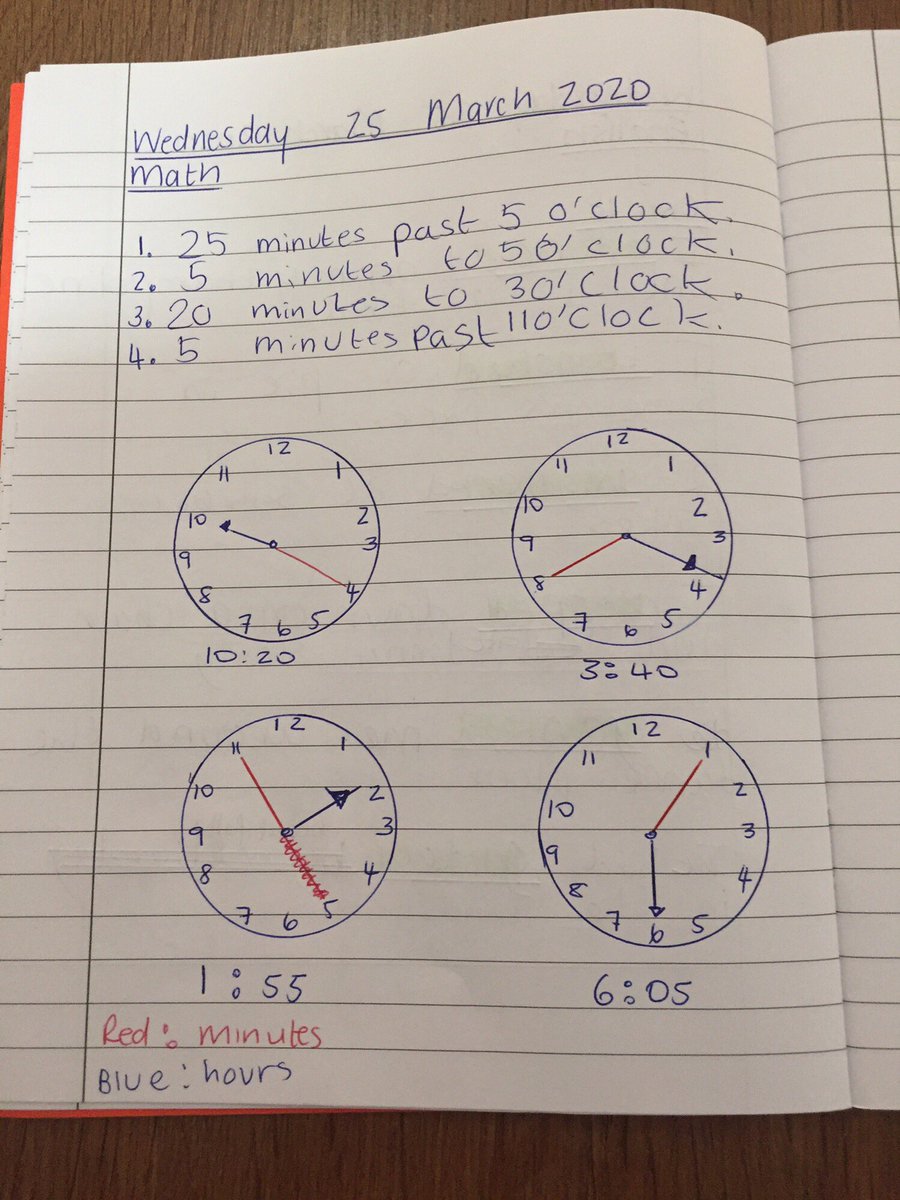 Wednesday 25 March 2020
Math
1. 25 minutes past 5 o'clock.
2. 5 minutes to 5 o'clock.
3. 20 minutes to 3 o'Clock.
4. 5 minutes past 11 o'Clock.
12
11 1
10 2
9 3
8 4
7 6 5
10:20
12
11 1
10 2
9 3
8 4
7 6 5
3:40
12
11 1
10 2
9 3
8 4
7 6 5
1:55
12
11 1
10 2
9 3
8 4
7 6 5
6:05
Red: minutes
Blue: hours